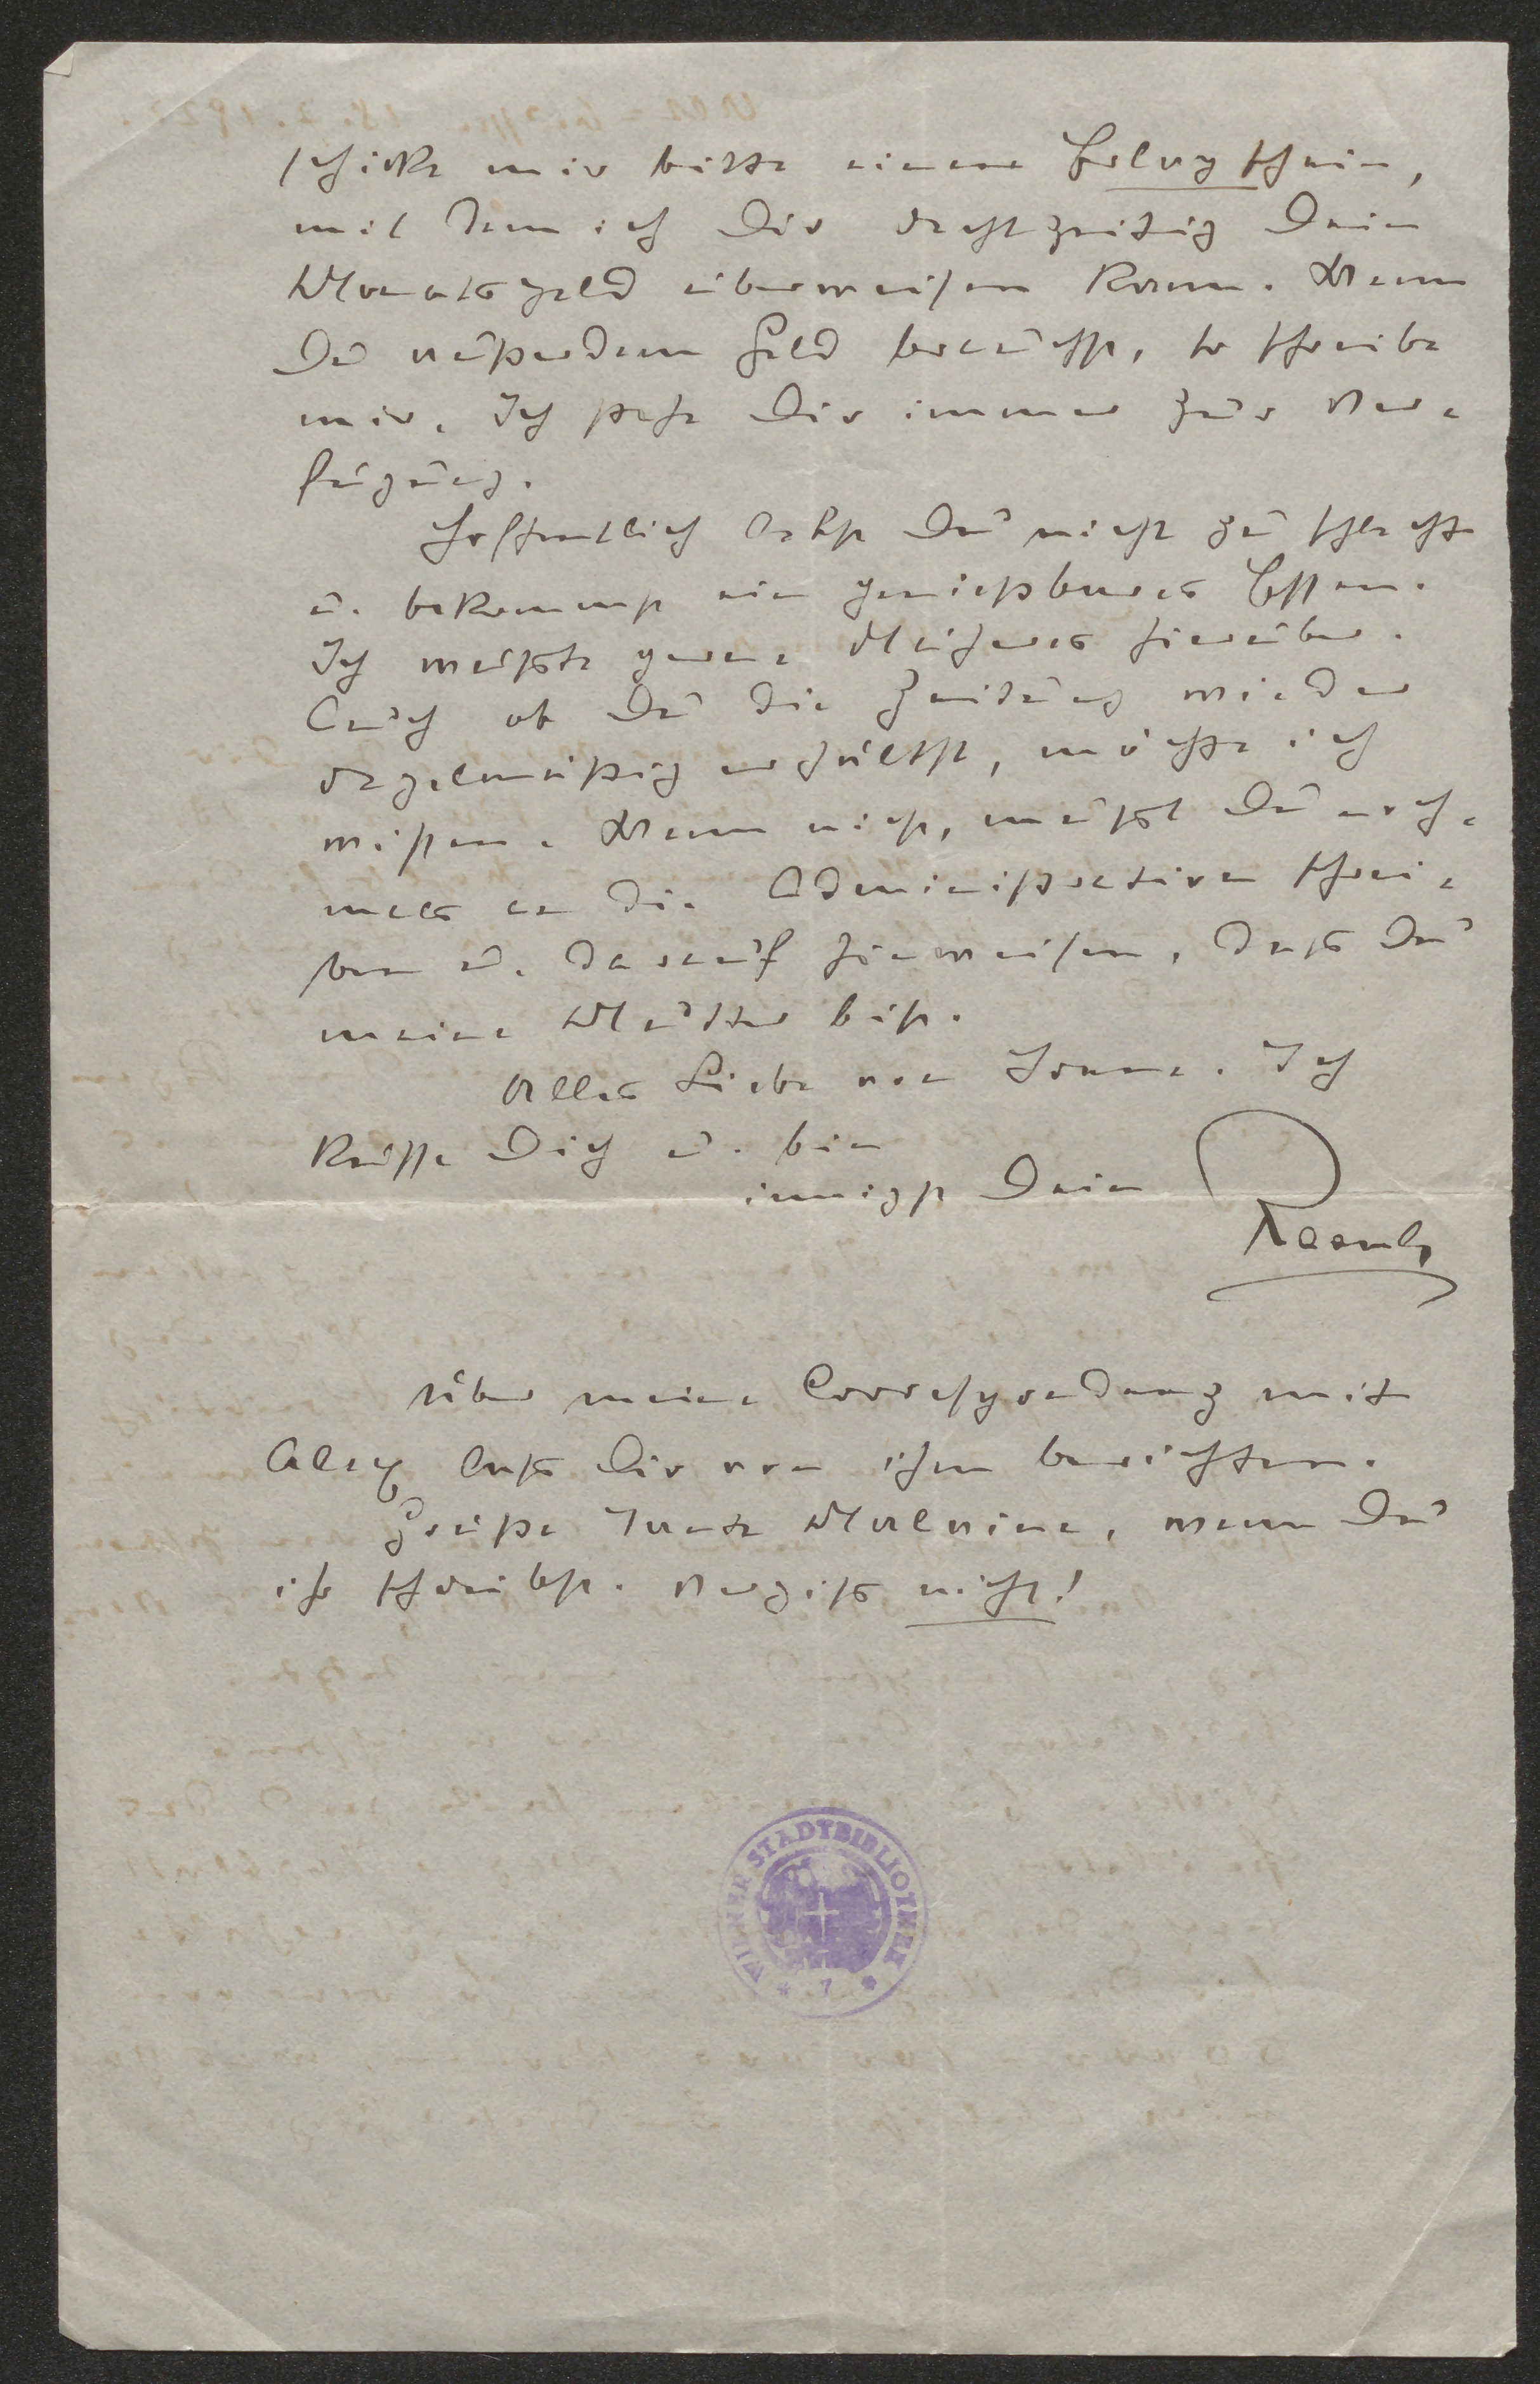 schicke mir bitte einen Erlagschein,
mit dem ich Dir rechtzeitig Dein
Monatsgeld überweisen kann. Wenn
Du außerdem Geld brauchst, so schreibe
mir. Ich stehe Dir immer zur Ver-
fügung.
Hoffentlich lebst Du nicht zu schlecht
u. bekommst ein genießbares Essen.
Ich wüßte gerne Näheres hierüber.
Auch ob Du die Zeitung wieder
regelmäßig erhältst, möchte ich
wissen. Wenn nicht, mußt Du noch-
mals an die Administration schrei-
ben u. darauf hinweisen, daß Du
meine Mutter bist.
Alles Liebe von Hanna. Ich
küsse Dich u. bin
innigst Dein
Raoul
Über meine Correspondenz mit
Alex laß Dir von ihm berichten.
Grüße Tante Malvine, wenn Du
ihr schreibst. Vergiß nicht!
WIENER STADTBIBLIOTHEK
* 7 *